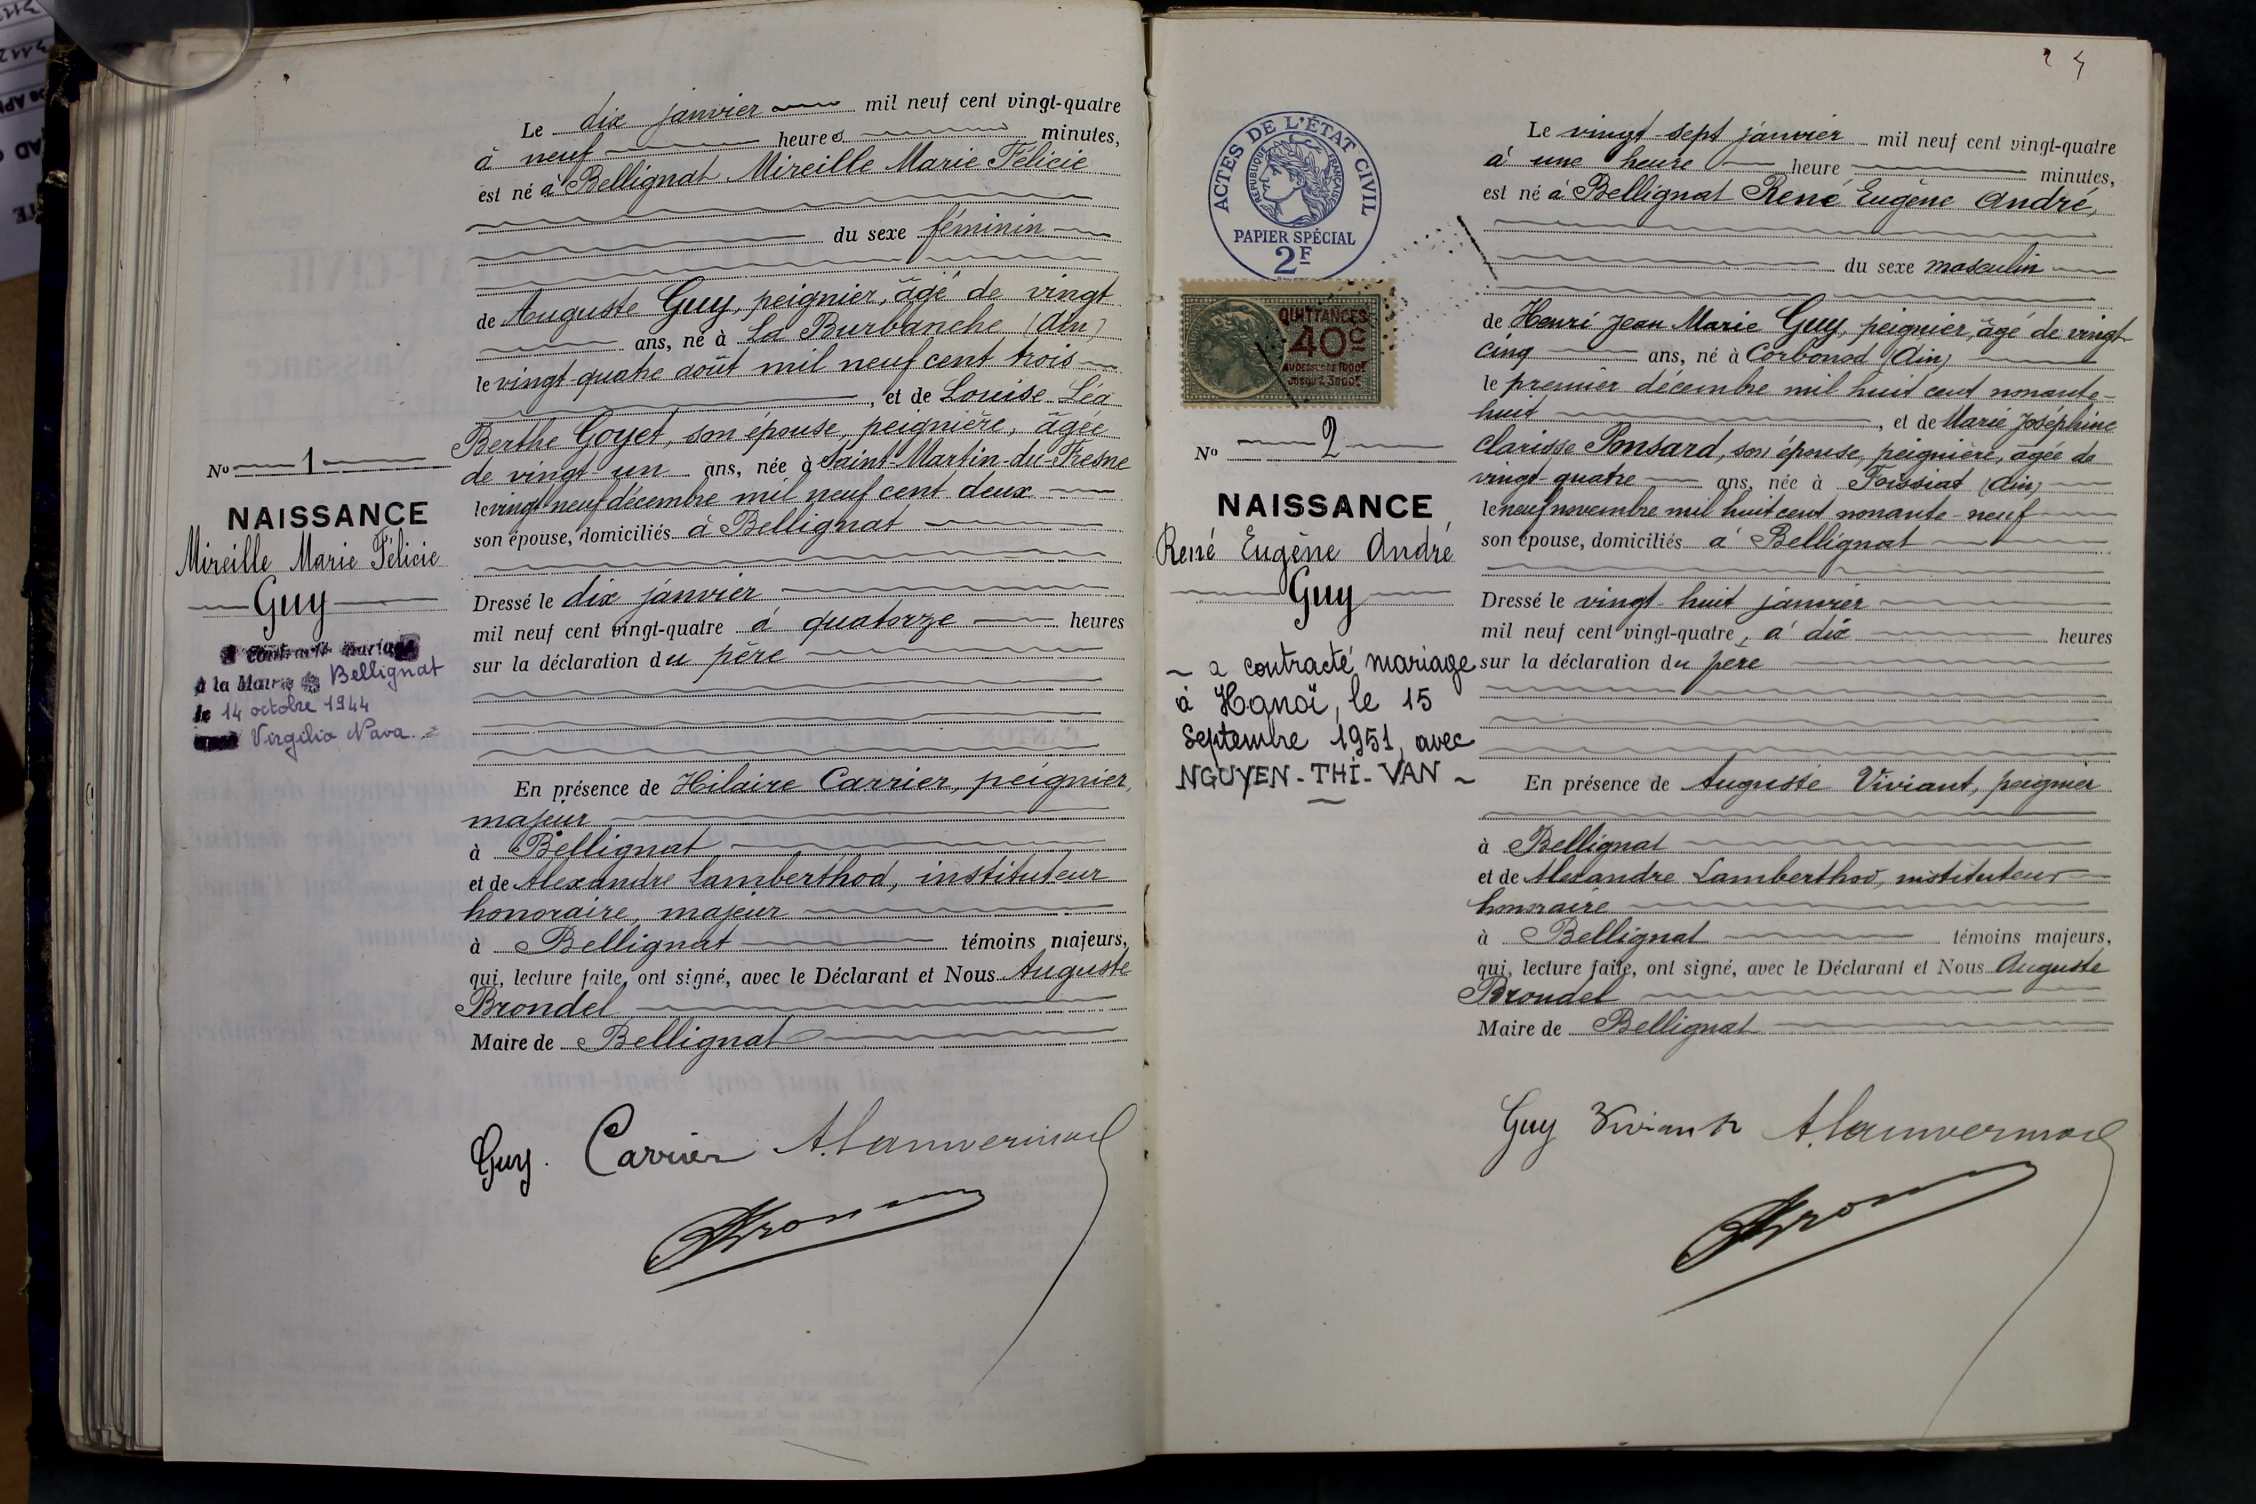 Le dix janvier mil neuf cent vingt-quatre
à neuf heures minutes,
est né à Bellignat Mireille Marie Félicie
du sexe féminin
de Auguste Guy, peignier, âgé de vingt
ans, né à La Burbanche (Ain)
le vingt-quatre août mil neuf cent trois
, et de Louise Léa
Berthe Goyet, son épouse, peignière, âgée
de vingt un ans, née à Saint-Martin-du-Fresne
le vingt neuf décembre mil neuf cent deux
son épouse, domiciliés à Bellignat
Dressé le dix janvier
mil neuf cent vingt-quatre à quatorze heures
sur la déclaration du père
En présence de Hilaire Carrier, peignier,
majeur
à Bellignat
et de Alexandre Lamberthod, instituteur
honoraire, majeur
à Bellignat témoins majeurs,
qui, lecture faite, ont signé, avec le Déclarant et Nous Auguste
Brondel
Maire de Bellignat
Guy. Carrier
No 1
NAISSANCE
Mireille Marie Félicie
Guy
a contracté mariage
à la Mairie de Bellignat
le 14 octobre 1944
avec Virgilio Nava.
ACTES DE L'ÉTAT CIVIL
RÉPUBLIQUE FRANÇAISE
PAPIER SPÉCIAL
2F
QUITTANCES
40c
AU DESSUS DE 1000F
JUSQU'À 3000F
No 2
NAISSANCE
René Eugène André
Guy
a contracté mariage
à Hanoï, le 15
Septembre 1951, avec
NGUYEN-THI-VAN
Le vingt-sept janvier mil neuf cent vingt-quatre
à une heure heure minutes,
est né à Bellignat René Eugène André,
du sexe masculin
de Henri Jean Marie Guy, peignier, âgé de vingt-
cinq ans, né à Corbonod (Ain)
le premier décembre mil huit cent nonante-
huit , et de Marie Joséphine
Clarisse Ponsard, son épouse, peignière, âgée de
vingt-quatre ans, née à Foissiat (Ain)
le neuf novembre mil huit cent nonante-neuf
son épouse, domiciliés à Bellignat
Dressé le vingt-huit janvier
mil neuf cent vingt-quatre, à dix heures
sur la déclaration du père
En présence de Auguste Viviant, peignier
à Bellignat
et de Alexandre Lamberthod, instituteur
honoraire
à Bellignat témoins majeurs,
qui, lecture faite, ont signé, avec le Déclarant et Nous Auguste
Brondel
Maire de Bellignat
Guy Viviant